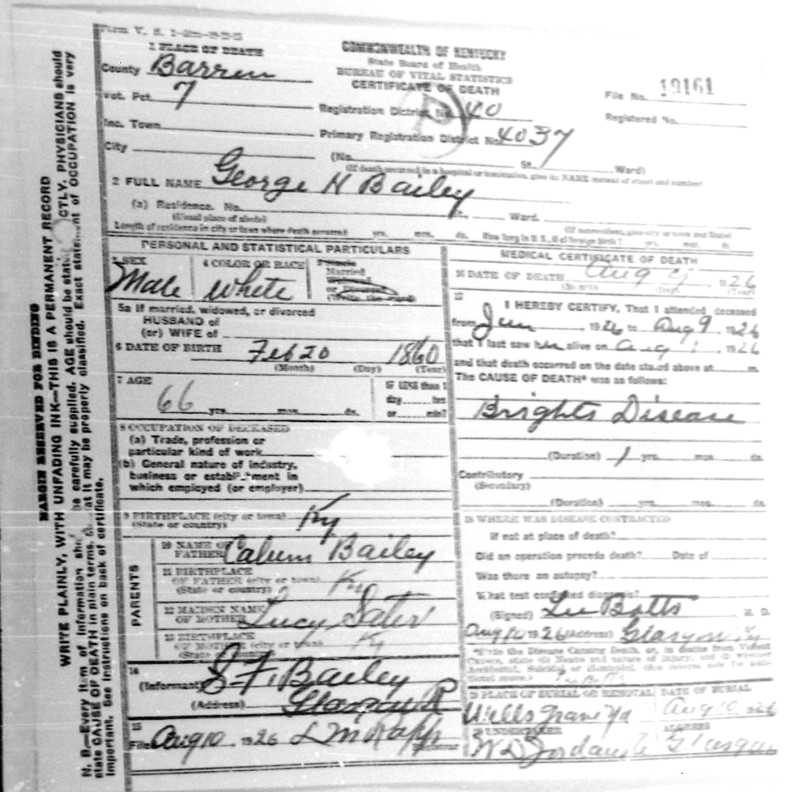 Form V. S.
COMMONWEALTH OF KENTUCKY
State Board of Health
BUREAU OF VITAL STATISTICS
CERTIFICATE OF DEATH
1 PLACE OF DEATH
County Barren
Vot. Pct. 7
Inc. Town
City
File No. 19161
Registered No.
Registration District No. 40
Primary Registration District No. 4037
(No. St. Ward)
(If death occurred in a hospital or institution, give its NAME instead of street and number)
2 FULL NAME George H Bailey
(a) Residence. No. St. Ward.
(Usual place of abode) (If nonresident, give city or town and State)
Length of residence in city or town where death occurred yrs. mos. ds. How long in U. S., if of foreign birth? yrs. mos. ds.
PERSONAL AND STATISTICAL PARTICULARS
3 SEX 4 COLOR OR RACE
Male White
Married
Widowed
or Divorced
(Write the word)
5a If married, widowed, or divorced
HUSBAND of
(or) WIFE of
6 DATE OF BIRTH Feb 20 1860
(Month) (Day) (Year)
7 AGE IF LESS than 1
66 yrs. mos. ds. day hrs
or min?
8 OCCUPATION OF DECEASED
(a) Trade, profession or
particular kind of work
(b) General nature of industry,
business or establishment in
which employed (or employer)
9 BIRTHPLACE (city or town) Ky
(State or country)
PARENTS
10 NAME OF
FATHER Bailey
11 BIRTHPLACE
OF FATHER (city or town) Ky
(State or country)
12 MAIDEN NAME
OF MOTHER Lucy
13 BIRTHPLACE
OF MOTHER (city or town) Ky
(State or country)
14
(Informant) S. F. Bailey
(Address)
15
Filed Aug 10 1926
MEDICAL CERTIFICATE OF DEATH
16 DATE OF DEATH Aug 9 1926
17
I HEREBY CERTIFY, That I attended deceased
from Jun 1926 to Aug 9 1926
that I last saw him alive on Aug 1926
and that death occurred on the date stated above at m.
The CAUSE OF DEATH* was as follows:
Brights Disease
(Duration) 1 yrs. mos. ds.
Contributory
(Secondary)
(Duration) yrs. mos. ds.
18 WHERE WAS DISEASE CONTRACTED
if not at place of death?
Did an operation precede death? Date of
Was there an autopsy?
What test confirmed diagnosis?
(Signed) Lee Botts M. D.
Aug 10 1926 (Address) Glasgow Ky
19 PLACE OF BURIAL OR REMOVAL DATE OF BURIAL
Wells Aug 10 1926
20 UNDERTAKER ADDRESS
W D Jordan Glasgow
MARGIN RESERVED FOR BINDING
WRITE PLAINLY, WITH UNFADING INK—THIS IS A PERMANENT RECORD
N. B.—Every item of information be carefully supplied. AGE should be PHYSICIANS should
state CAUSE OF DEATH in plain terms, at it may be properly classified. Exact of OCCUPATION is very
important. See instructions on back of certificate.